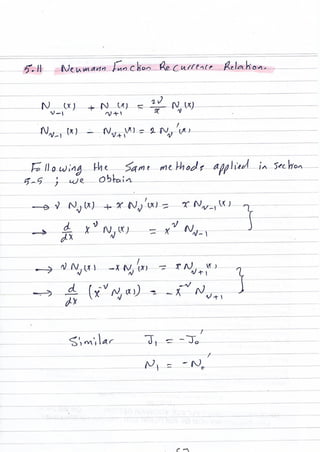 5.11 Neumann Function Recurrence Relation.
N_{ν-1}(x) + N_{ν+1}(x) = 2ν/x N_ν(x)
N_{ν-1}(x) - N_{ν+1}(x) = 2 N_ν'(x)
Following the same methods applied in section
5-5 ; we obtain
→ ν N_ν(x) + x N_ν'(x) = x N_{ν-1}(x)
→ d/dx x^ν N_ν(x) = x^ν N_{ν-1}
→ ν N_ν(x) - x N_ν'(x) = x N_{ν+1}(x)
→ d/dx (x^{-ν} N_ν(x)) = - x^{-ν} N_{ν+1}
Similar J_1 = -J_0'
N_1 = -N_0'